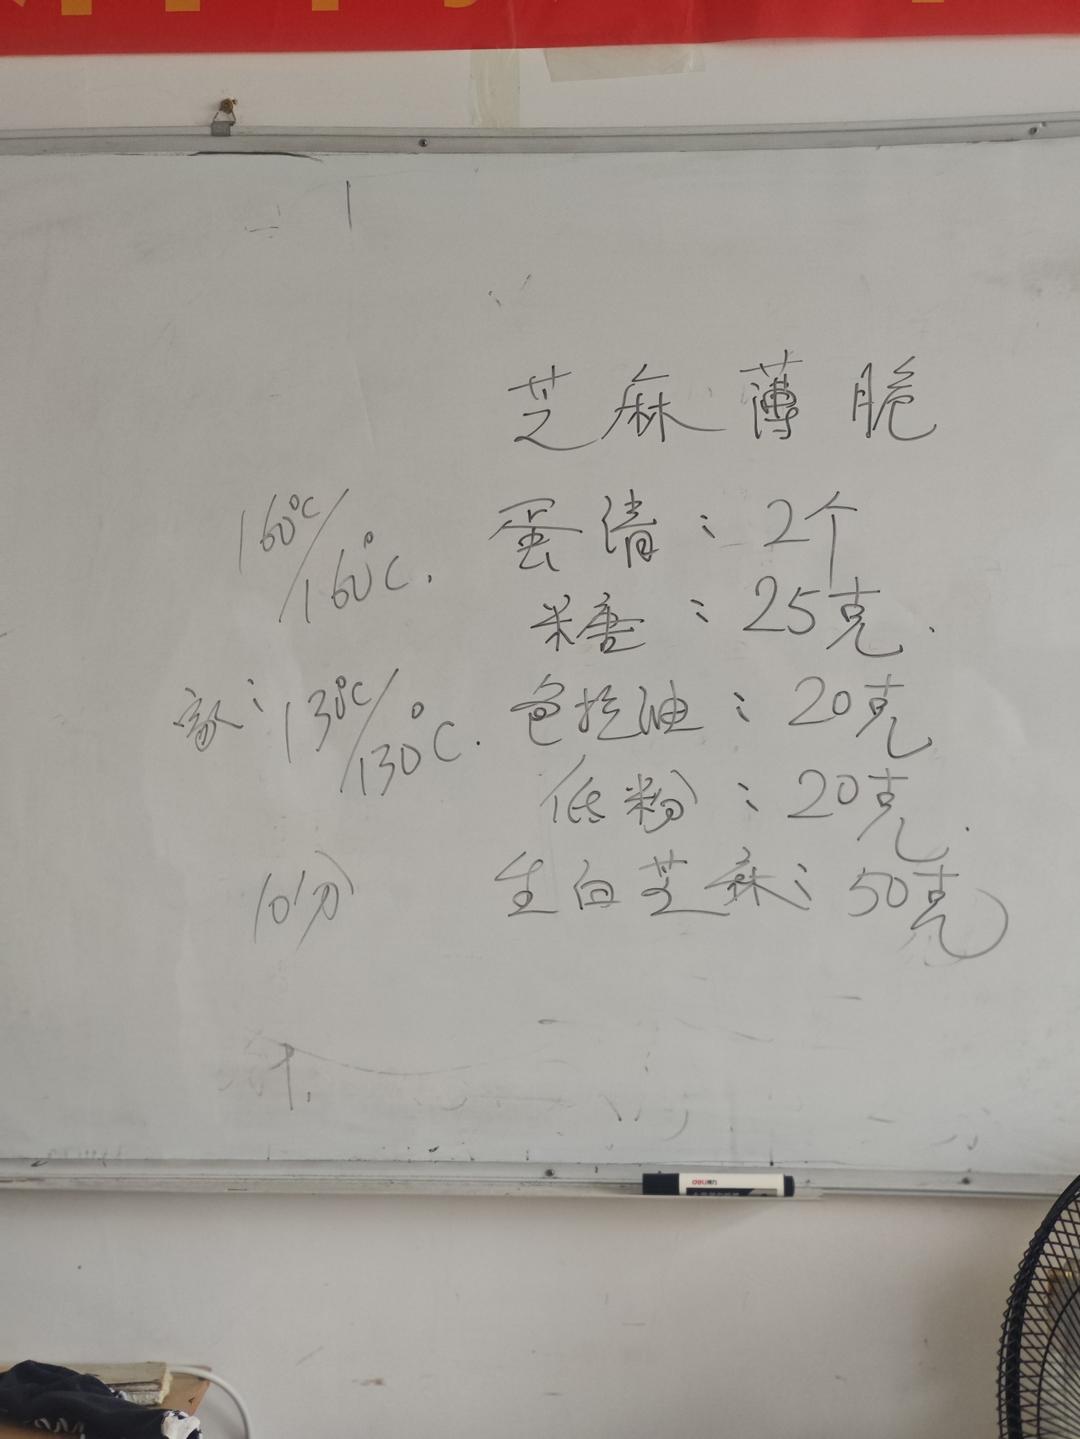 芝麻薄脆
蛋清：2个
糖：25克.
色拉油：20克
低粉：20克.
生白芝麻：50克
160°C/160°C.
家：130°C/130°C.
10分
deli得力